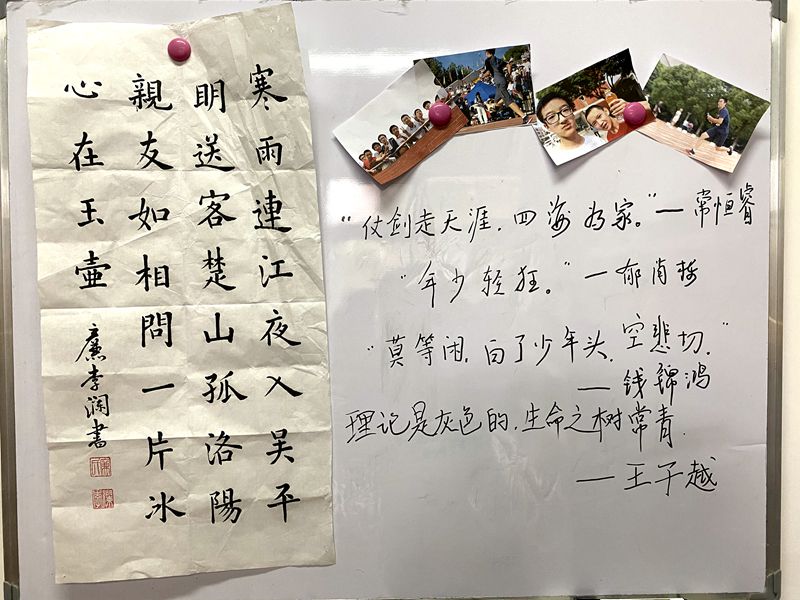 寒雨連江夜入吳平
明送客楚山孤洛陽
親友如相問一片冰
心在玉壺
廉李瀾書
“仗剑走天涯，四海为家。”—常恒睿
“年少轻狂。”—郁
“莫等闲，白了少年头，空悲切。”
—钱锦鸿
理论是灰色的，生命之树常青.
—王子越